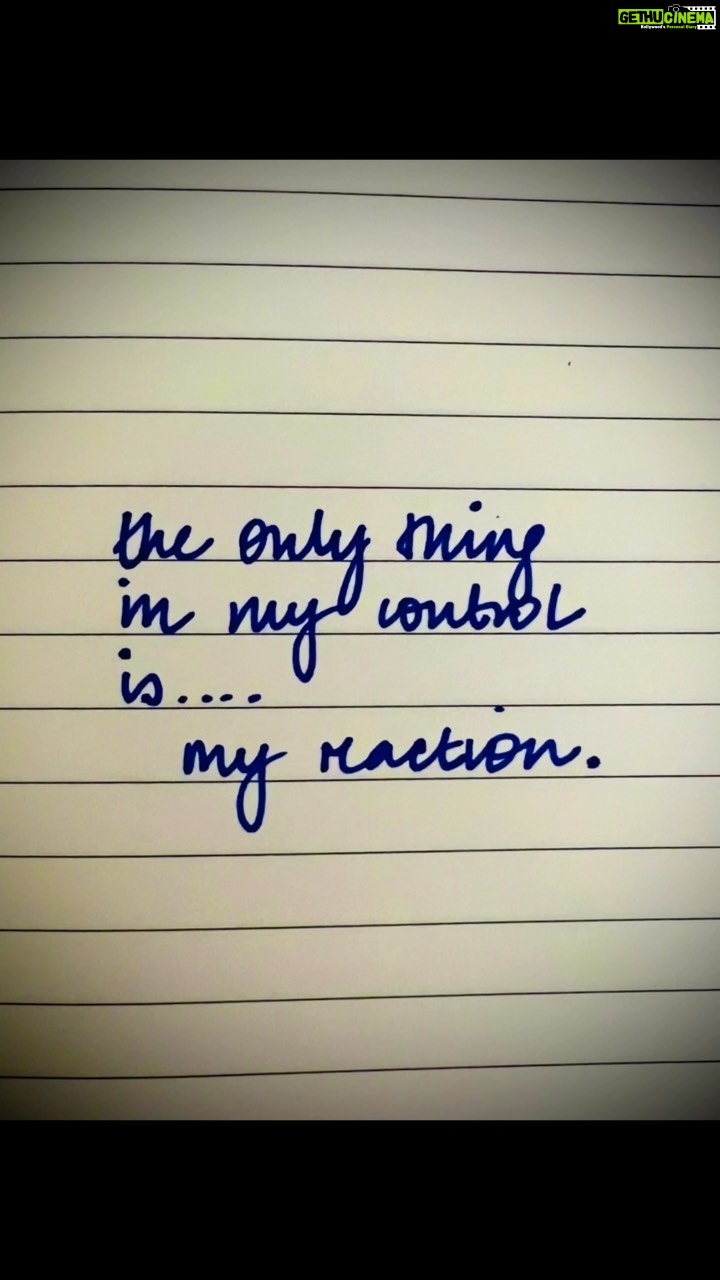 GETHUCINEMA
Kollywood's Personal Diary
the only thing
in my control
is....
my reaction.